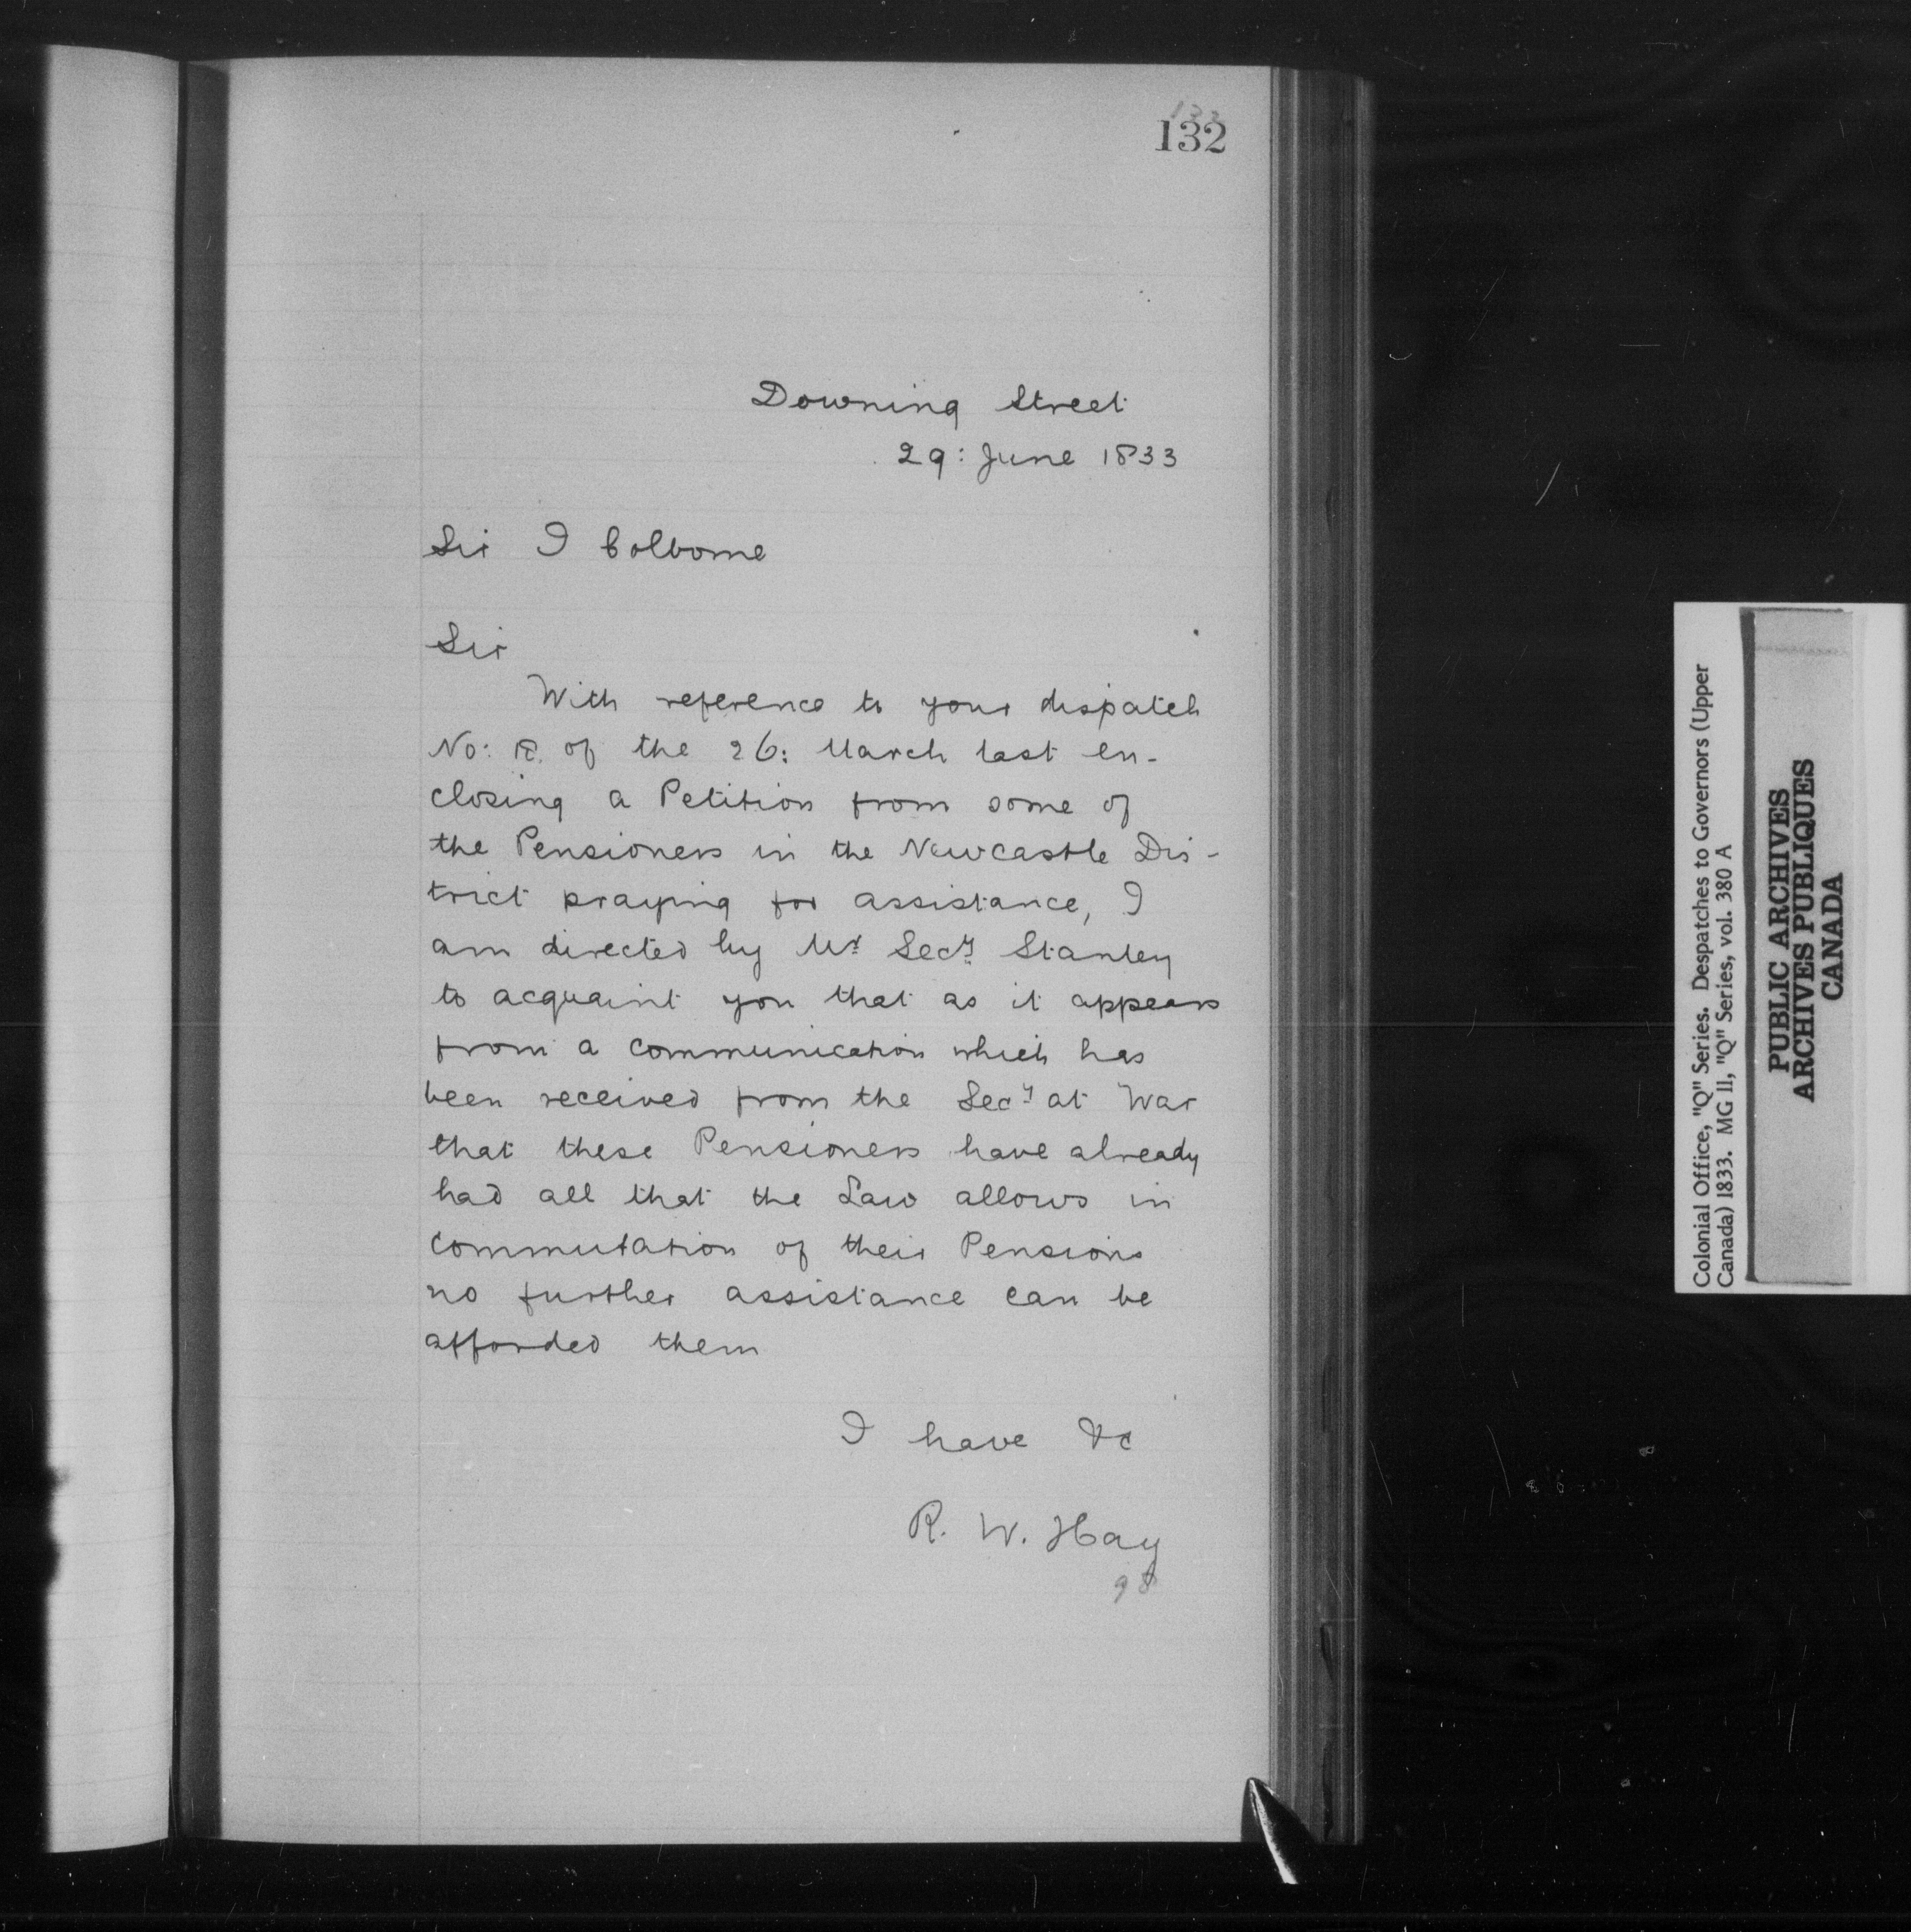 132
Downing Street
29: June 1833
Sir J Colborne
Sir
With reference to your dispatch
No: of the 26: March last en-
closing a Petition from some of
the Pensioners in the Newcastle Dis-
trict praying for assistance, I
am directed by Mr Secy Stanley
to acquaint you that as it appears
from a communication which has
been received from the Secy at War
that these Pensioners have already
had all that the Law allows in
commutation of their Pensions
no further assistance can be
afforded them
I have &c
R. W. Hay
98
Colonial Office, "Q" Series. Despatches to Governors (Upper
Canada) 1833. MG 11, "Q" Series, vol. 380 A
PUBLIC ARCHIVES
ARCHIVES PUBLIQUES
CANADA